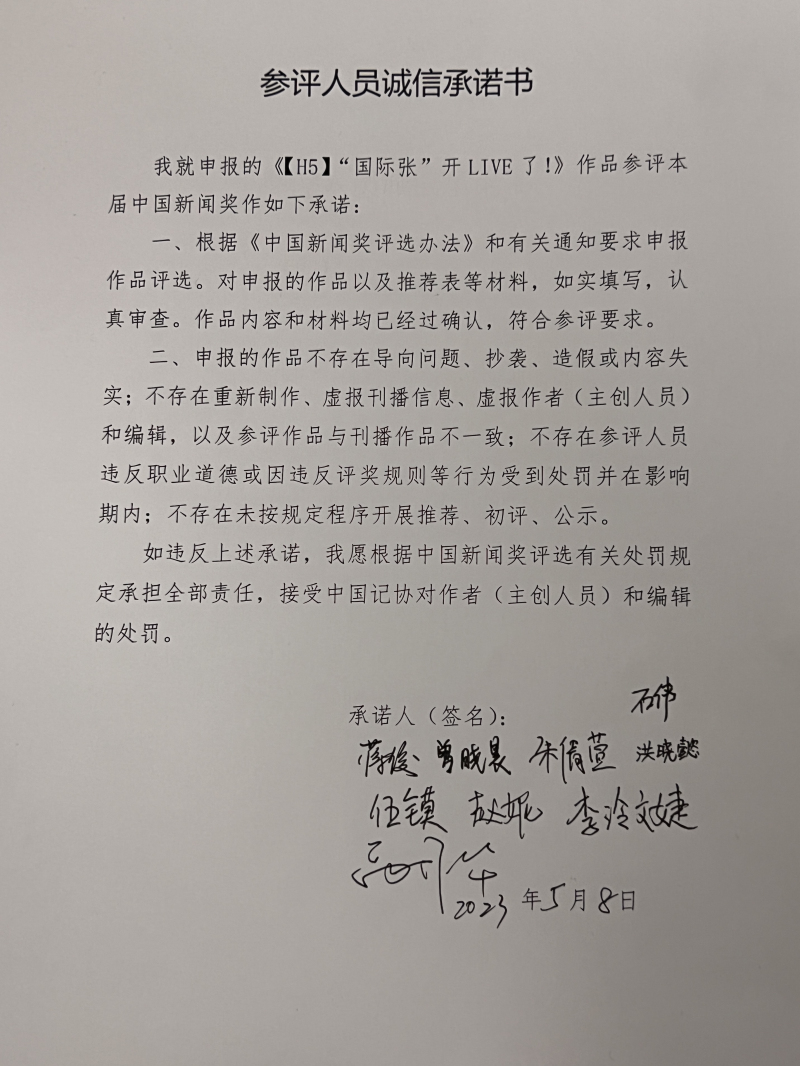 参评人员诚信承诺书
我就申报的《【H5】“国际张”开 LIVE 了！》作品参评本
届中国新闻奖作如下承诺：
一、根据《中国新闻奖评选办法》和有关通知要求申报
作品评选。对申报的作品以及推荐表等材料，如实填写，认
真审查。作品内容和材料均已经过确认，符合参评要求。
二、申报的作品不存在导向问题、抄袭、造假或内容失
实；不存在重新制作、虚报刊播信息、虚报作者（主创人员）
和编辑，以及参评作品与刊播作品不一致；不存在参评人员
违反职业道德或因违反评奖规则等行为受到处罚并在影响
期内；不存在未按规定程序开展推荐、初评、公示。
如违反上述承诺，我愿根据中国新闻奖评选有关处罚规
定承担全部责任，接受中国记协对作者（主创人员）和编辑
的处罚。
石伟
承诺人（签名）：
蒋俊 曾晓晨 朱倩萱 洪晓懿
伍镆 赵妮 李泠 文婕
2023 年 5 月 8 日